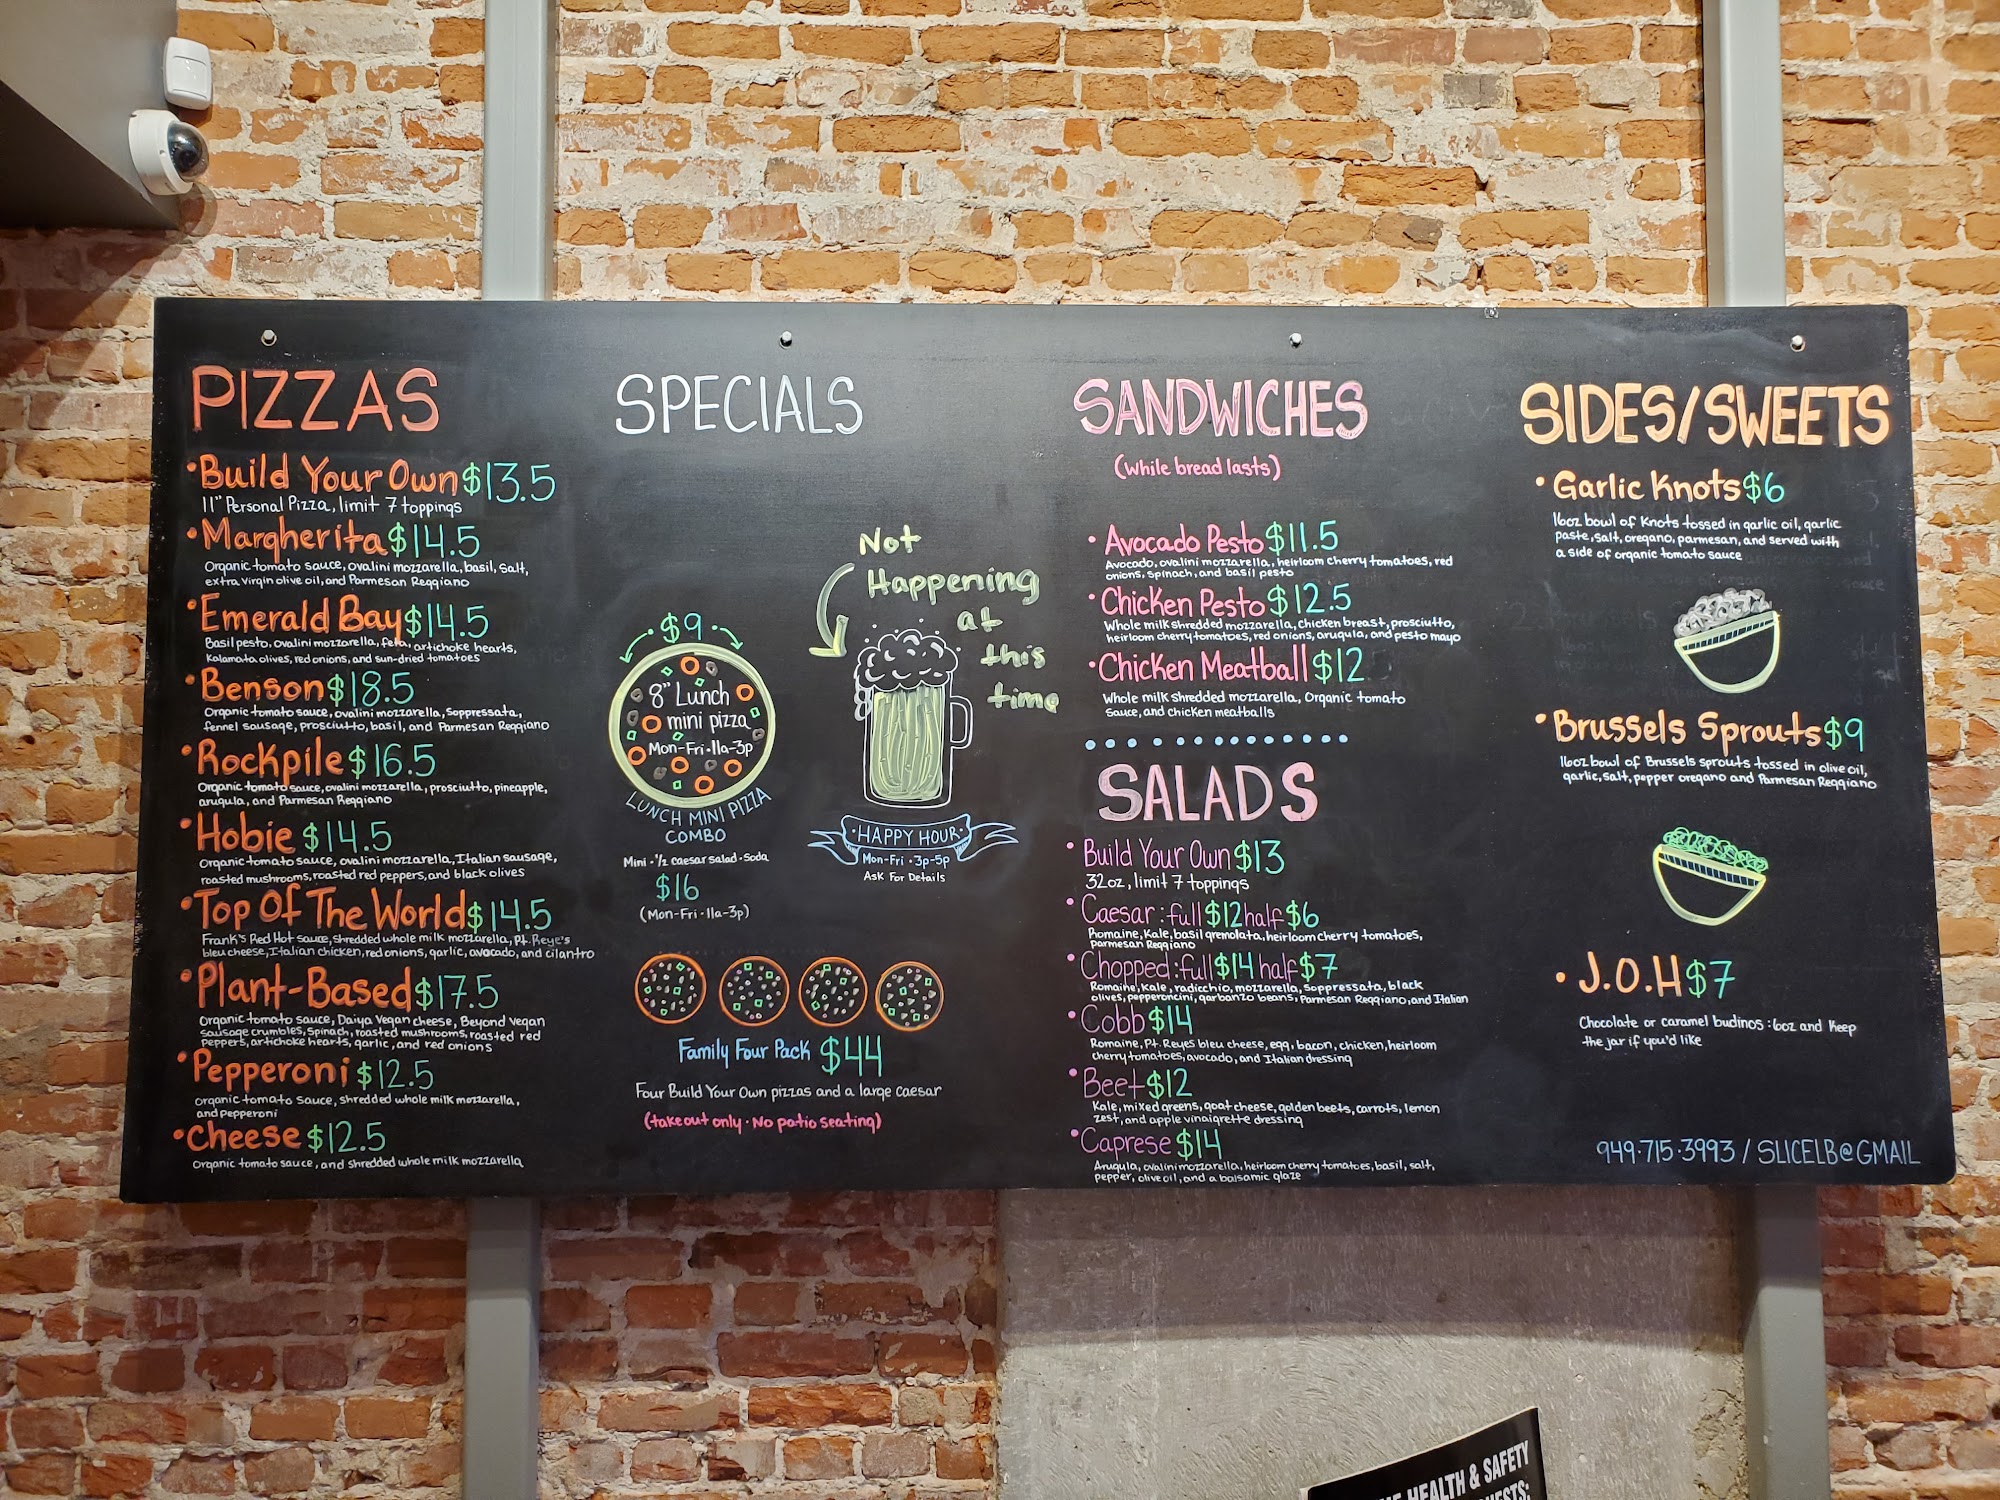 PIZZAS
•Build Your Own $13.5
11" Personal Pizza, limit 7 toppings
•Margherita $14.5
Organic tomato sauce, ovalini mozzarella, basil, salt,
extra virgin olive oil, and Parmesan Reggiano
•Emerald Bay $14.5
Basil pesto, ovalini mozzarella, feta, artichoke hearts,
Kalamata olives, red onions, and sun-dried tomatoes
•Benson $18.5
Organic tomato sauce, ovalini mozzarella, Soppressata,
fennel sausage, prosciutto, basil, and Parmesan Reggiano
•Rockpile $16.5
Organic tomato sauce, ovalini mozzarella, prosciutto, pineapple,
arugula, and Parmesan Reggiano
•Hobie $14.5
Organic tomato sauce, ovalini mozzarella, Italian sausage,
roasted mushrooms, roasted red peppers, and black olives
•Top Of The World $14.5
Frank's Red Hot sauce, shredded whole milk mozzarella, Pt. Reye's
bleu cheese, Italian chicken, red onions, garlic, avocado, and cilantro
•Plant-Based $17.5
Organic tomato sauce, Daiya Vegan cheese, Beyond Vegan
sausage crumbles, Spinach, roasted mushrooms, roasted red
peppers, artichoke hearts, garlic, and red onions
•Pepperoni $12.5
organic tomato Sauce, shredded whole milk mozzarella,
and pepperoni
•Cheese $12.5
Organic tomato sauce, and shredded whole milk mozzarella
SPECIALS
$9
8" Lunch
mini pizza
Mon-Fri•11a-3p
LUNCH MINI PIZZA
COMBO
Mini • 1/2 caesar salad • Soda
$16
(Mon-Fri•11a-3p)
Not
Happening
at
this
time
•HAPPY HOUR•
Mon-Fri • 3p-5p
Ask For Details
Family Four Pack $44
Four Build Your Own pizzas and a large caesar
(takeout only • No patio seating)
SANDWICHES
(while bread lasts)
•Avocado Pesto $11.5
Avocado, ovalini mozzarella, heirloom cherry tomatoes, red
onions, spinach, and basil pesto
•Chicken Pesto $12.5
Whole milk shredded mozzarella, chicken breast, prosciutto,
heirloom cherry tomatoes, red onions, arugula, and pesto mayo
•Chicken Meatball $12
Whole milk shredded mozzarella, Organic tomato
Sauce, and chicken meatballs
SALADS
•Build Your Own $13
32oz, limit 7 toppings
•Caesar: full $12 half $6
Romaine, Kale, basil gremolata, heirloom cherry tomatoes,
Parmesan Reggiano
•Chopped: full $14 half $7
Romaine, Kale, radicchio, mozzarella, Soppressata, black
olives, pepperoncini, garbanzo beans, Parmesan Reggiano, and Italian
•Cobb $14
Romaine, Pt. Reyes bleu cheese, egg, bacon, chicken, heirloom
cherry tomatoes, avocado, and Italian dressing
•Beet $12
Kale, mixed greens, goat cheese, golden beets, carrots, lemon
zest, and apple vinaigrette dressing
•Caprese $14
Arugula, ovalini mozzarella, heirloom cherry tomatoes, basil, salt,
pepper, olive oil, and a balsamic glaze
SIDES/SWEETS
•Garlic Knots $6
16oz bowl of Knots tossed in garlic oil, garlic
paste, salt, oregano, parmesan, and served with
a side of organic tomato sauce
•Brussels Sprouts $9
16oz bowl of Brussels sprouts tossed in olive oil,
garlic, salt, pepper oregano and Parmesan Reggiano
•J.O.H $7
Chocolate or caramel budinos: 6oz and Keep
the jar if you'd like
949•715•3993 / SLICELB@GMAIL
HEALTH & SAFETY